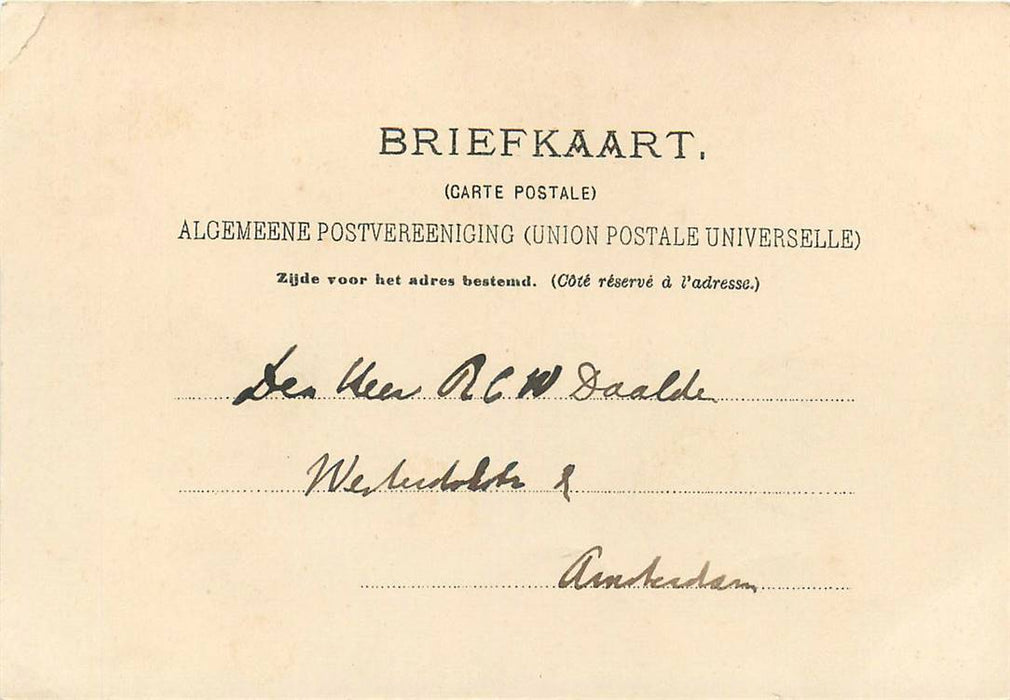 BRIEFKAART.
(CARTE POSTALE)
ALGEMEENE POSTVEREENIGING (UNION POSTALE UNIVERSELLE)
Zijde voor het adres bestemd. (Côté réservé à l'adresse.)
Den Heer R C W Daalder
Amsterdam